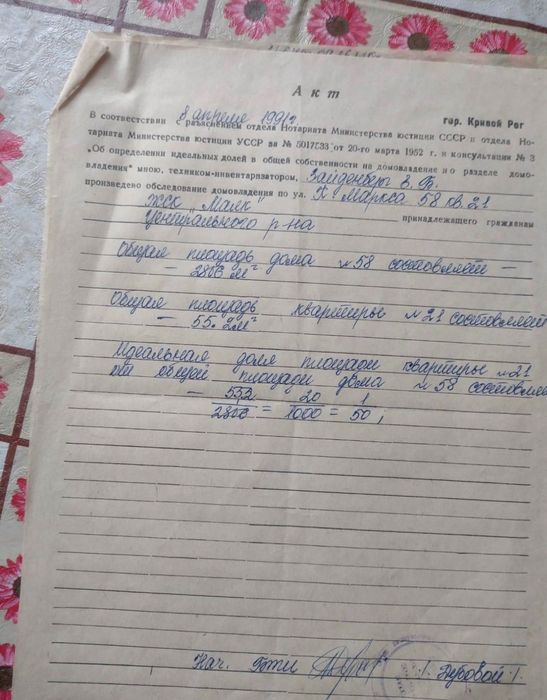 Акт
8 апреля 1991г гор. Кривой Рог
В соответствии разъяснением отдела Нотариата Министерства юстиции СССР и отдела Но-
тариата Министерства юстиции УССР за № 5017533 от 20-го марта 1952 г. и консультации № 3
„Об определении идеальных долей в общей собственности на домовладение и о разделе домо-
владения“ мною, техником-инвентаризатором, Зайденберг Б. Б.
произведено обследование домовладения по ул. К. Маркса 58 кв. 21
ЖСК „Маяк“
Центрального р-на принадлежащего гражданам
Общая площадь дома №58 составляет —
— 2806 м²
Общая площадь квартиры №21 составляет
— 55.2м²
Идеальная доля площади квартиры №21
от общей площади дома №58 составляе
— 55,2/2806 = 20/1000 = 1/50,
Нач. Бти /. Дубовой /.